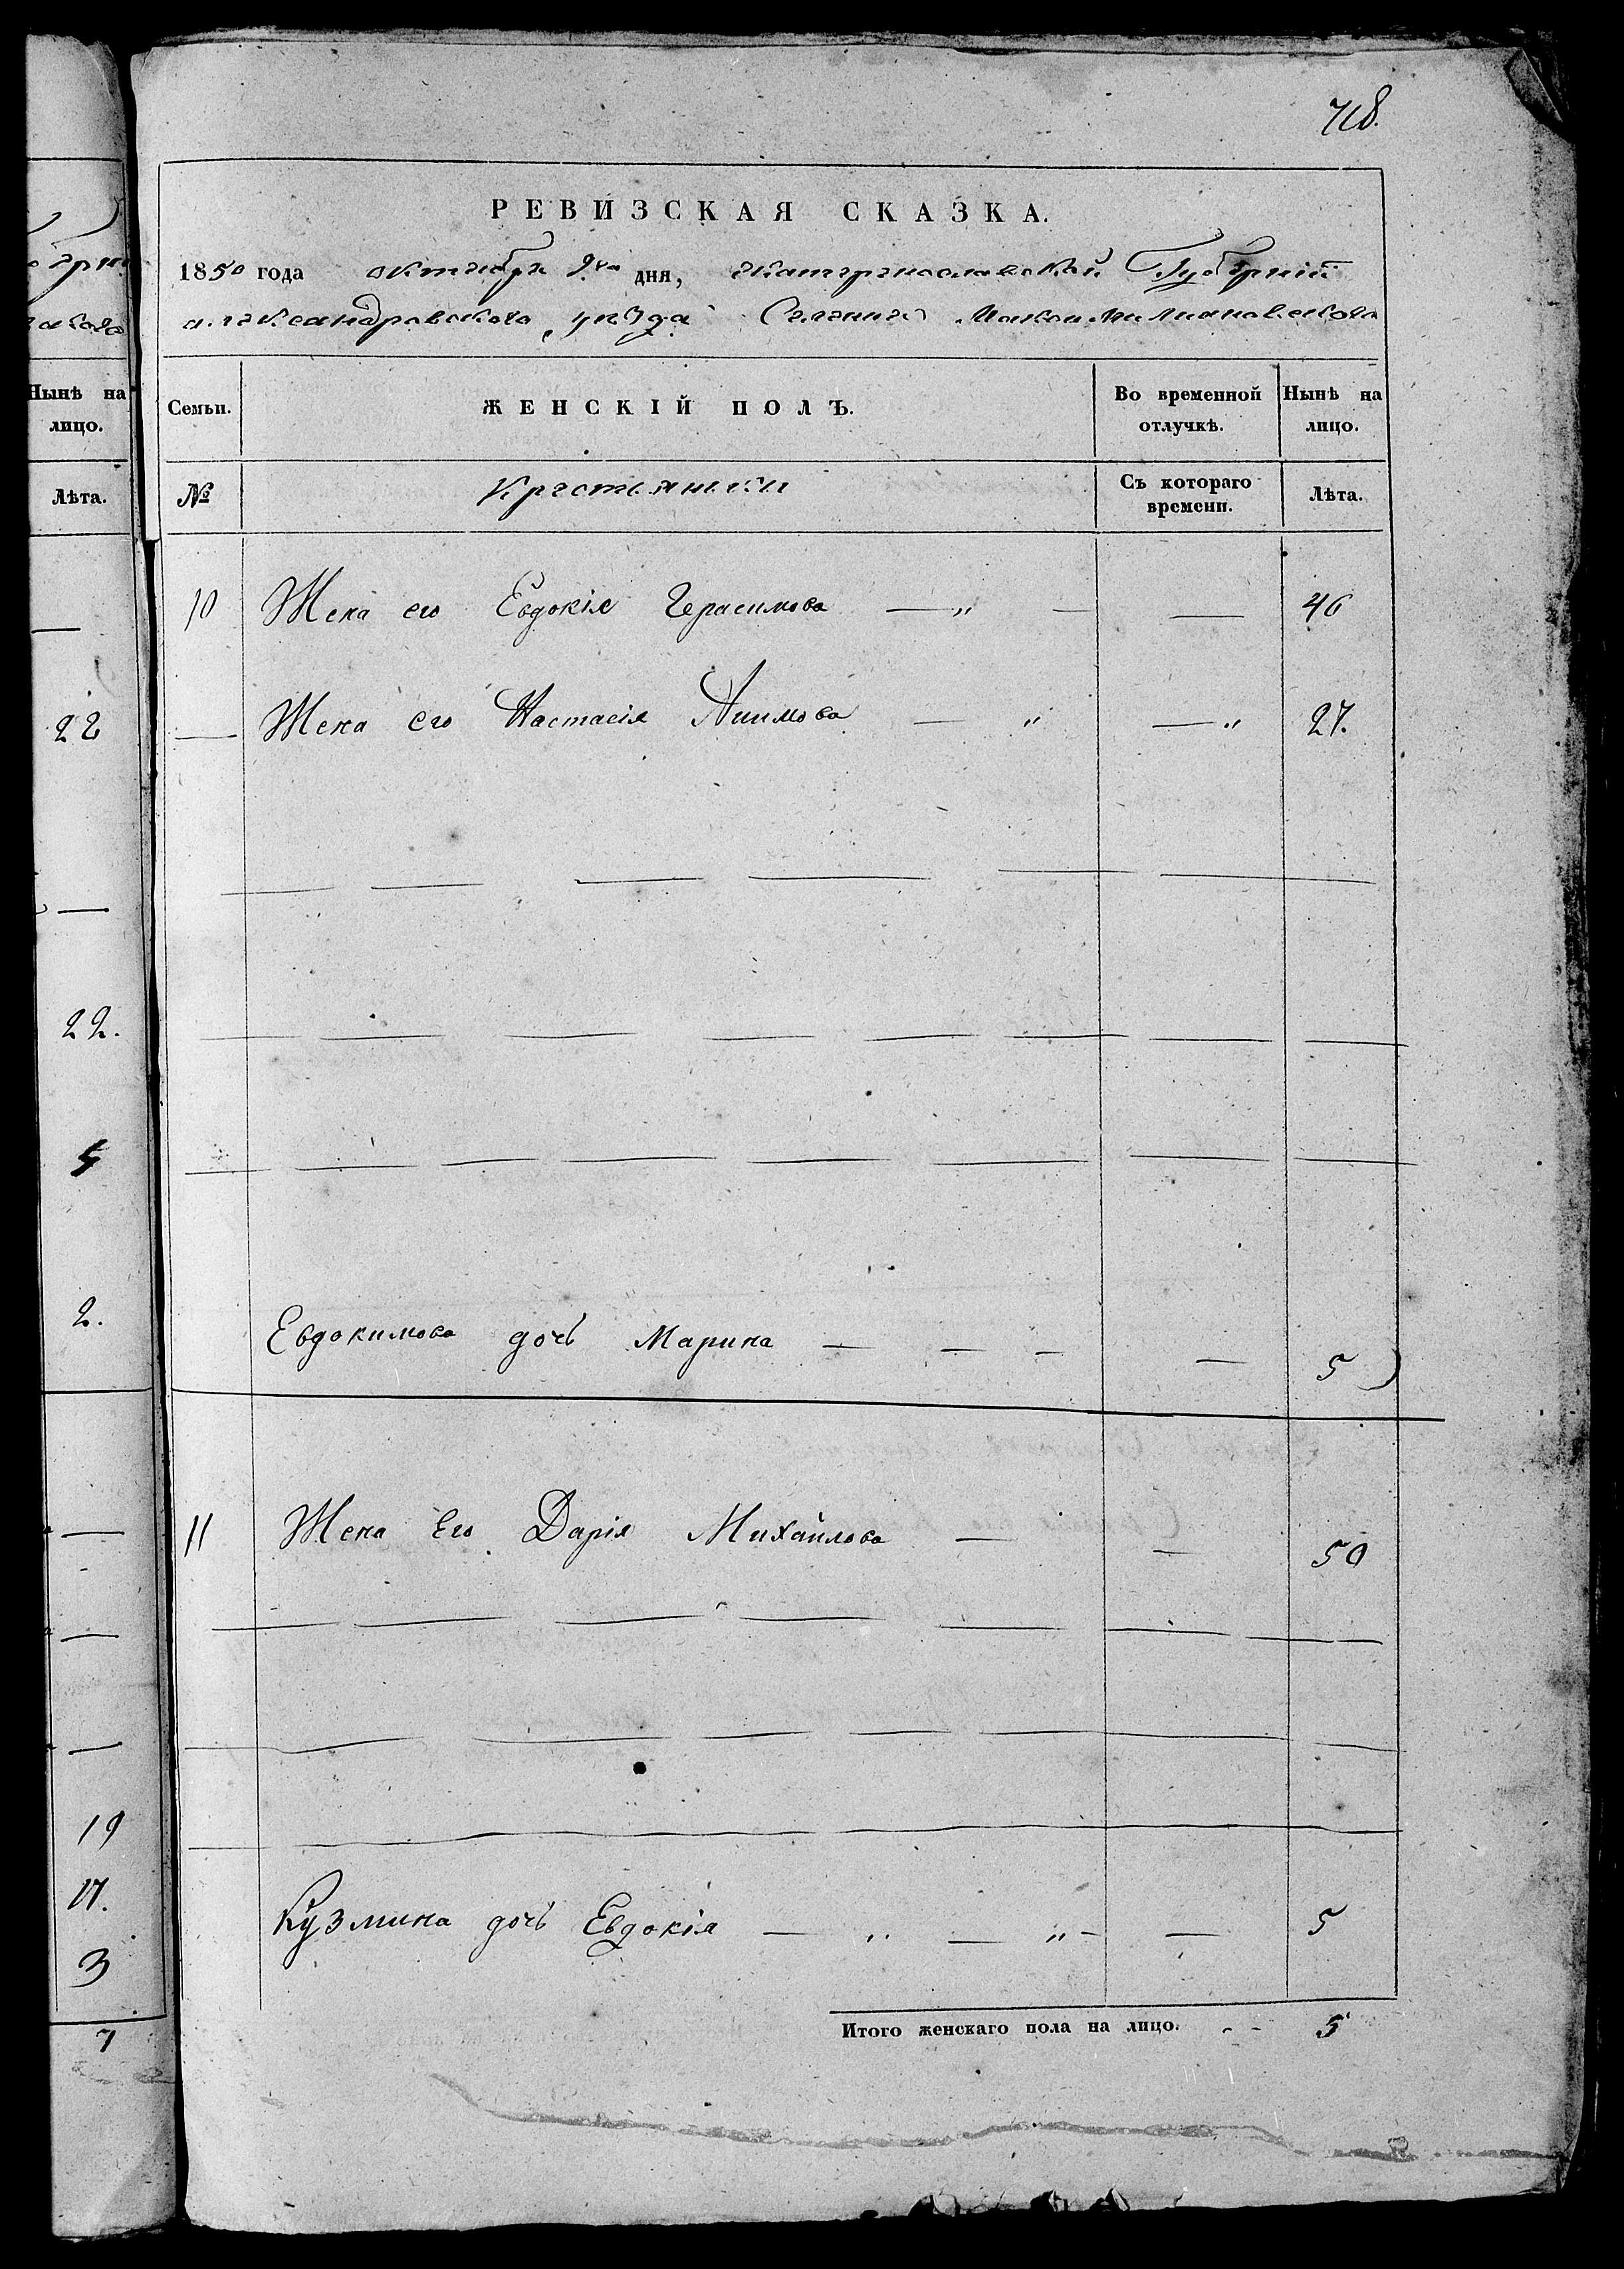 718.
РЕВИЗСКАЯ СКАЗКА.
1850 года октября 9го дня, екатеринославской Губерніи
александровского уезда Селения Максимилиановского
Семьи. ЖЕНСКІЙ ПОЛЪ. Во временной отлучкѣ. Нынѣ на лицо.
№ Крестьянки Съ котораго времени. Лѣта.
10 Жена его Евдокія Герасимова — „ — — 46
— Жена его Настасія Акимова — „ — „ 27.
Евдокимова дочь Марина — — — — 5
11 Жена Его Дарія Михайлова — — 50
Кузмина дочь Евдокія — „ — „ - — 5
Итого женскаго пола на лицо. - - 5
Нынѣ на
лицо.
Лѣта.
—
22
—
22.
2.
—
—
—
19
17.
3
7